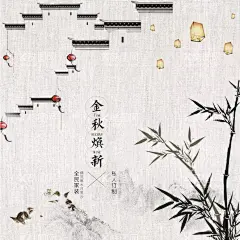 金秋焕新
全民家装
私人订制